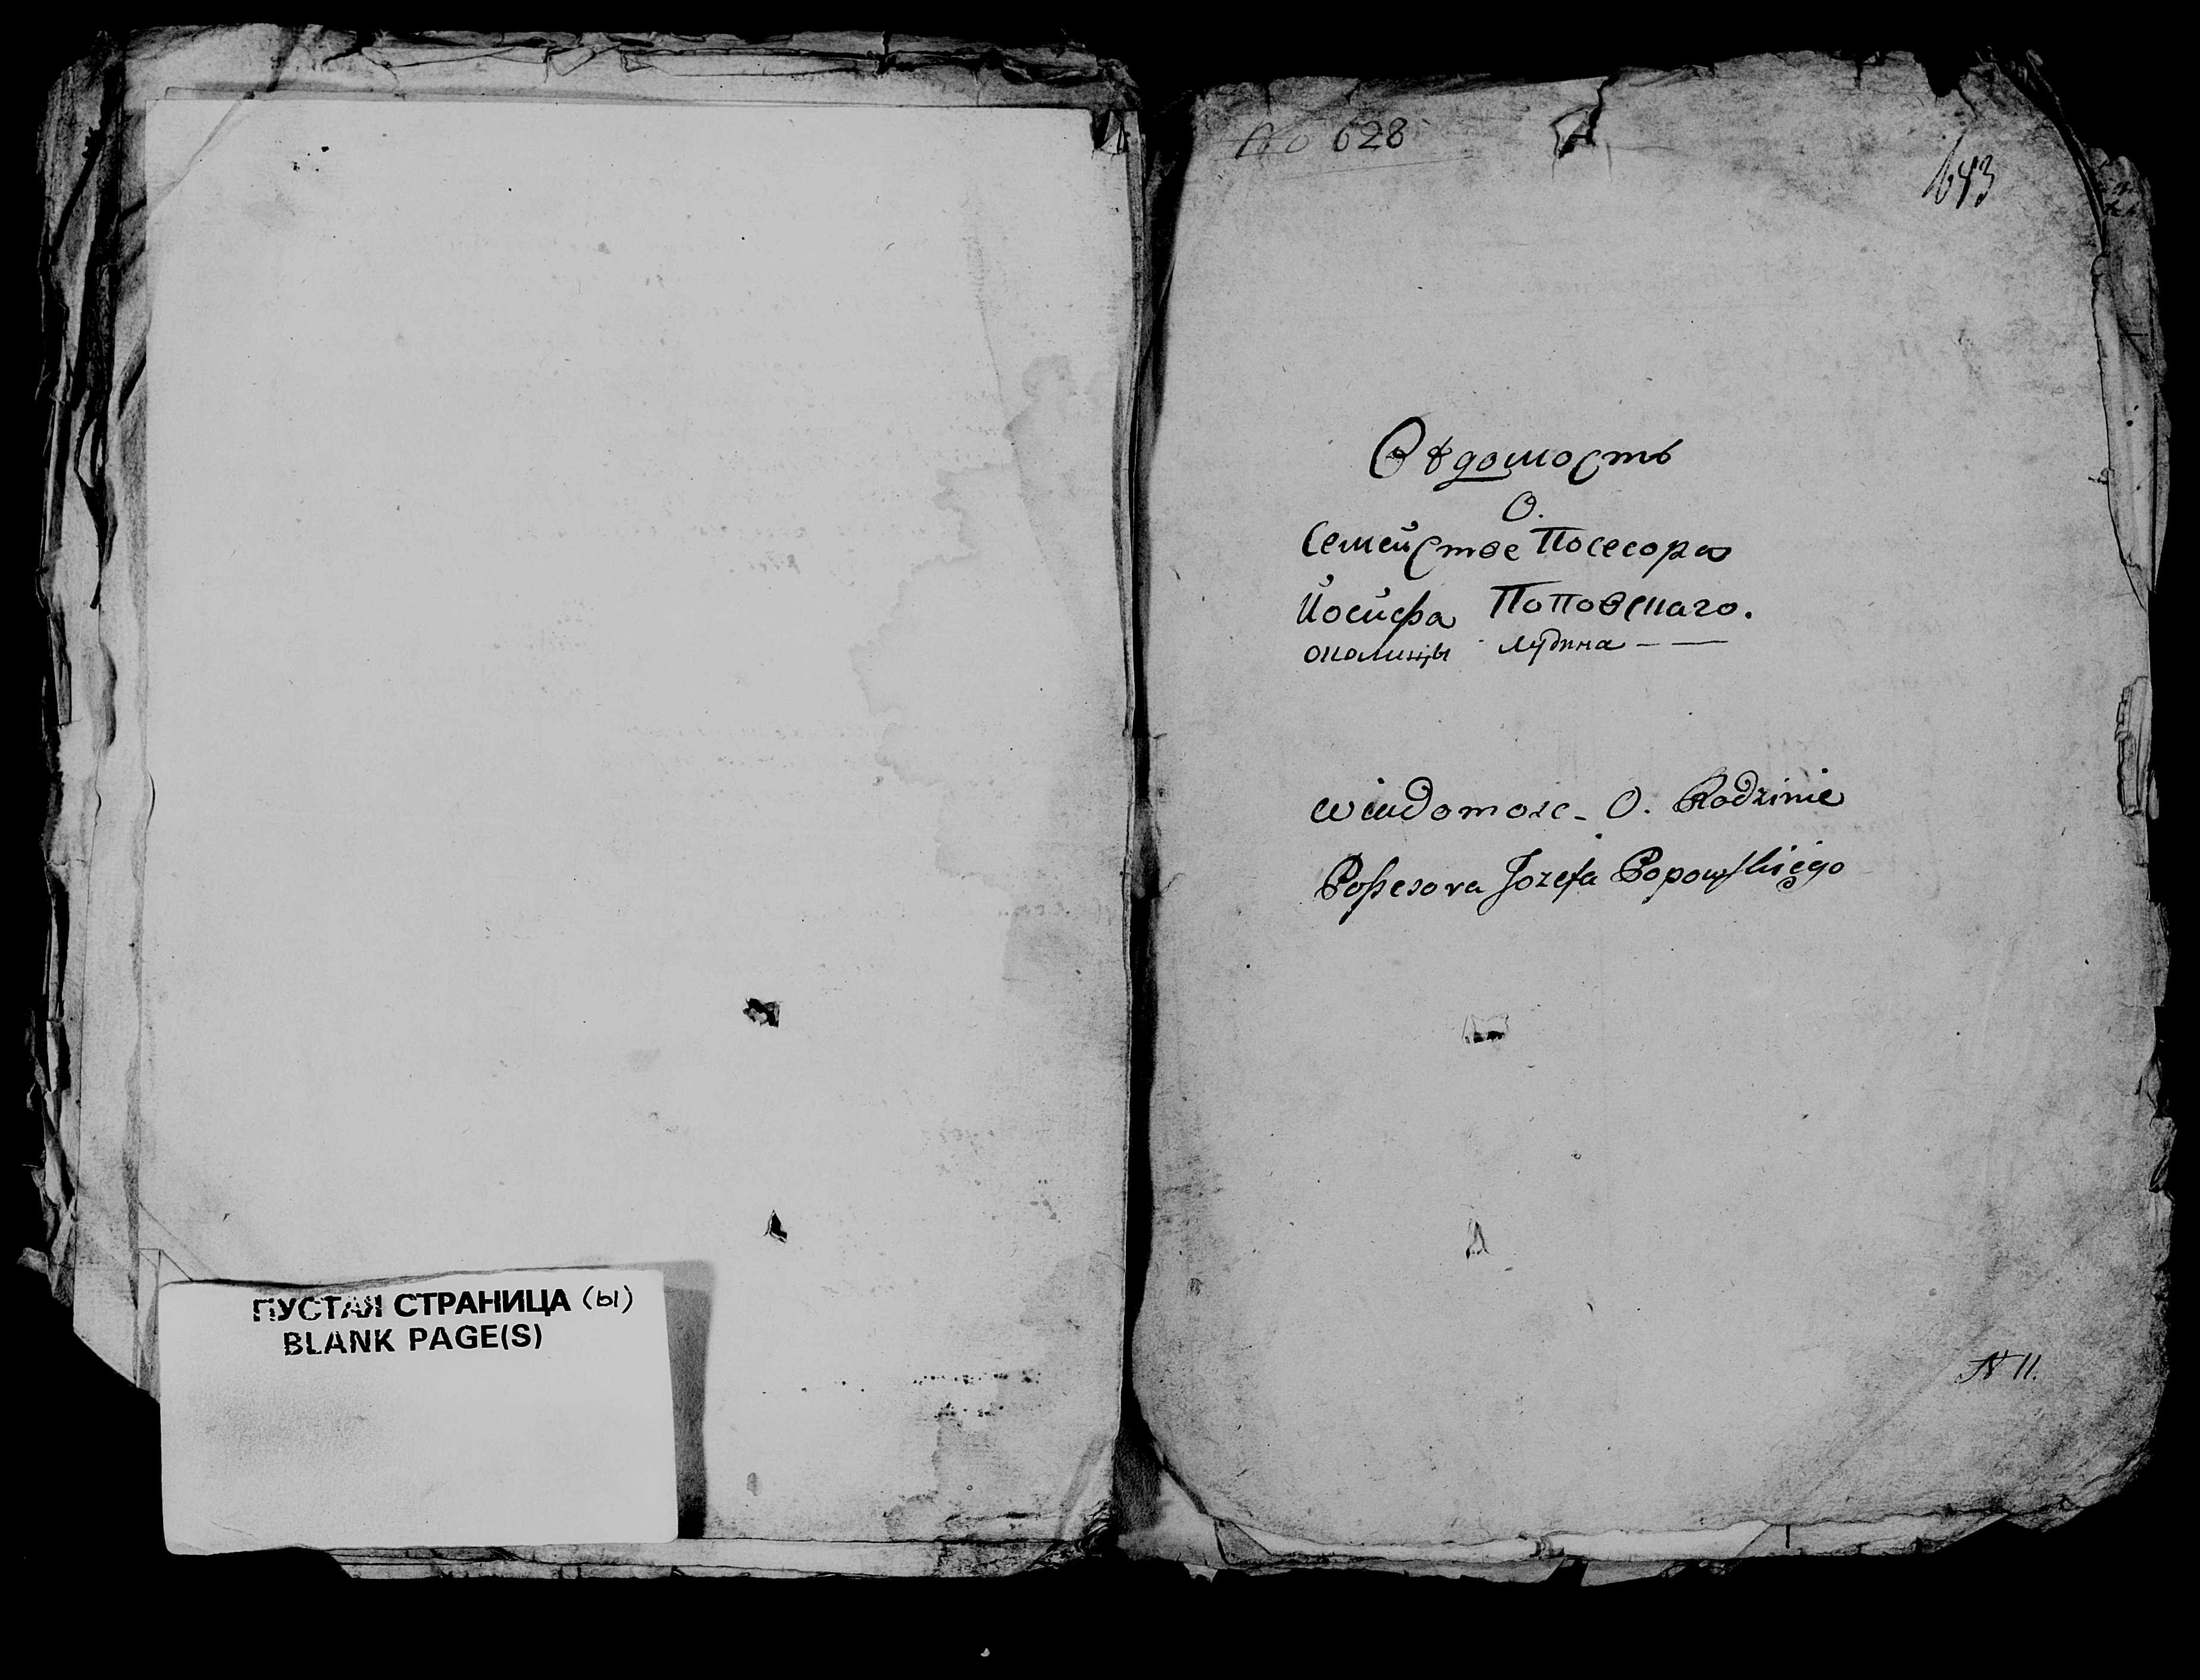 ПУСТАЯ СТРАНИЦА (ы)
BLANK PAGE(S)
No 628
643
Вѣдомость
О.
Семействе Посесора
Йосифа Поповскаго.
околицы Лудина — —
wiadomosc - O. Rodzinie
Possesora Jozefa Popowskiego
N 11.